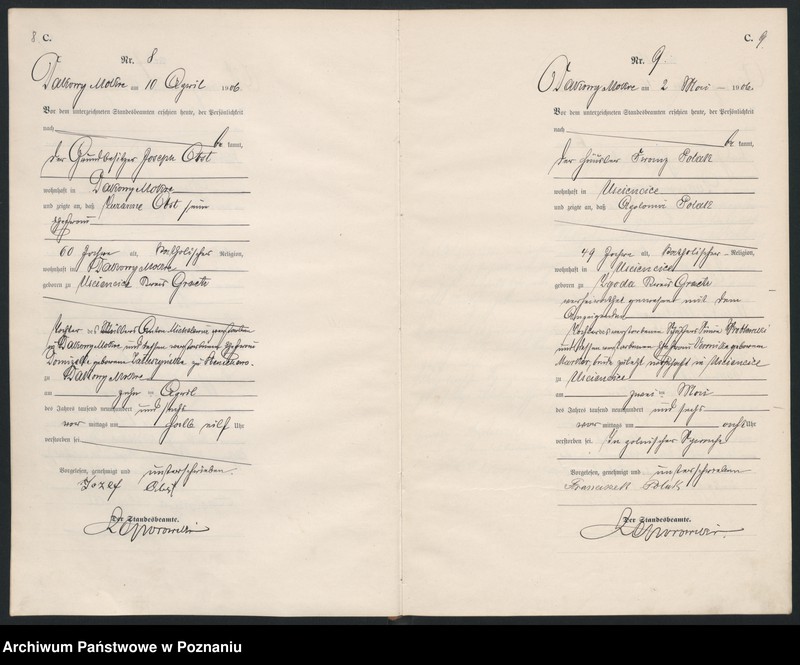 8 C.
Nr. 8
Dakowy Mokre am 10 April 1906.
Vor dem unterzeichneten Standesbeamten erschien heute, der Persönlichkeit
nach
be kannt,
der Grundbesitzer Joseph Obst
wohnhaft in Dakowy Mokre
und zeigte an, daß Obst seine
Ehefrau
60 Jahre alt, katholischer Religion,
wohnhaft in Dakowy Mokre
geboren zu Uścięncice Kreis Graetz
Tochter des Müllers Anton verstorben
in Dakowy Mokre, und dessen verstorbenen Ehefrau
geborene zu
zu Dakowy Mokre
am zehn ten April
des Jahres tausend neunhundert und sechs
vor mittags um halb eilf Uhr
verstorben sei
Vorgelesen, genehmigt und unterschrieben.
Jozef Obst
Der Standesbeamte.
C. 9
Nr. 9
Dakowy Mokre am 2 Mai 1906.
Vor dem unterzeichneten Standesbeamten erschien heute, der Persönlichkeit
nach
be kannt,
der Häusler Franz Polak
wohnhaft in Uścięncice
und zeigte an, daß Apolonia Polak
49 Jahre alt, katholischer Religion,
wohnhaft in Uścięncice
geboren zu Zgoda Kreis Graetz
verheirathet gewesen mit dem
Anzeigenden
Tochter des verstorbenen Schäfers Simon
und dessen verstorbenen Ehefrau Veronika geborene
zuletzt wohnhaft in Uścięncice
zu Uścięncice
am zwei ten Mai
des Jahres tausend neunhundert und sechs
vor mittags um acht Uhr
verstorben sei. In polnischer Sprache
Vorgelesen, genehmigt und unterschrieben
Franciszek Polak
Der Standesbeamte.
Archiwum Państwowe w Poznaniu